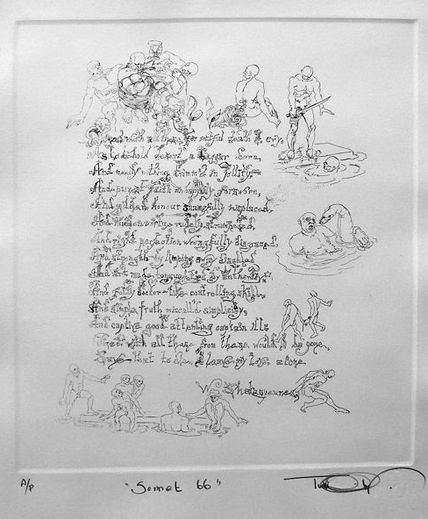 with all these, for restful death I cry,
As to behold desert a beggar born,
And needy nothing trimm'd in Jollity,
And purest faith unhappily forsworn,
And gilded honour shamefully misplaced,
And maiden virtue rudely strumpeted,
And right perfection wrongfully disgraced,
And strength by limping sway disabled
And art made tongue tied by authority,
And folly doctor-like controlling skill,
And simple truth miscall'd simplicity,
And captive good attending captain ill
Tired with all these from these would I be gone,
Save that to die, I leave my love alone
W Shakespeare
A/P
"Sonnet 66"